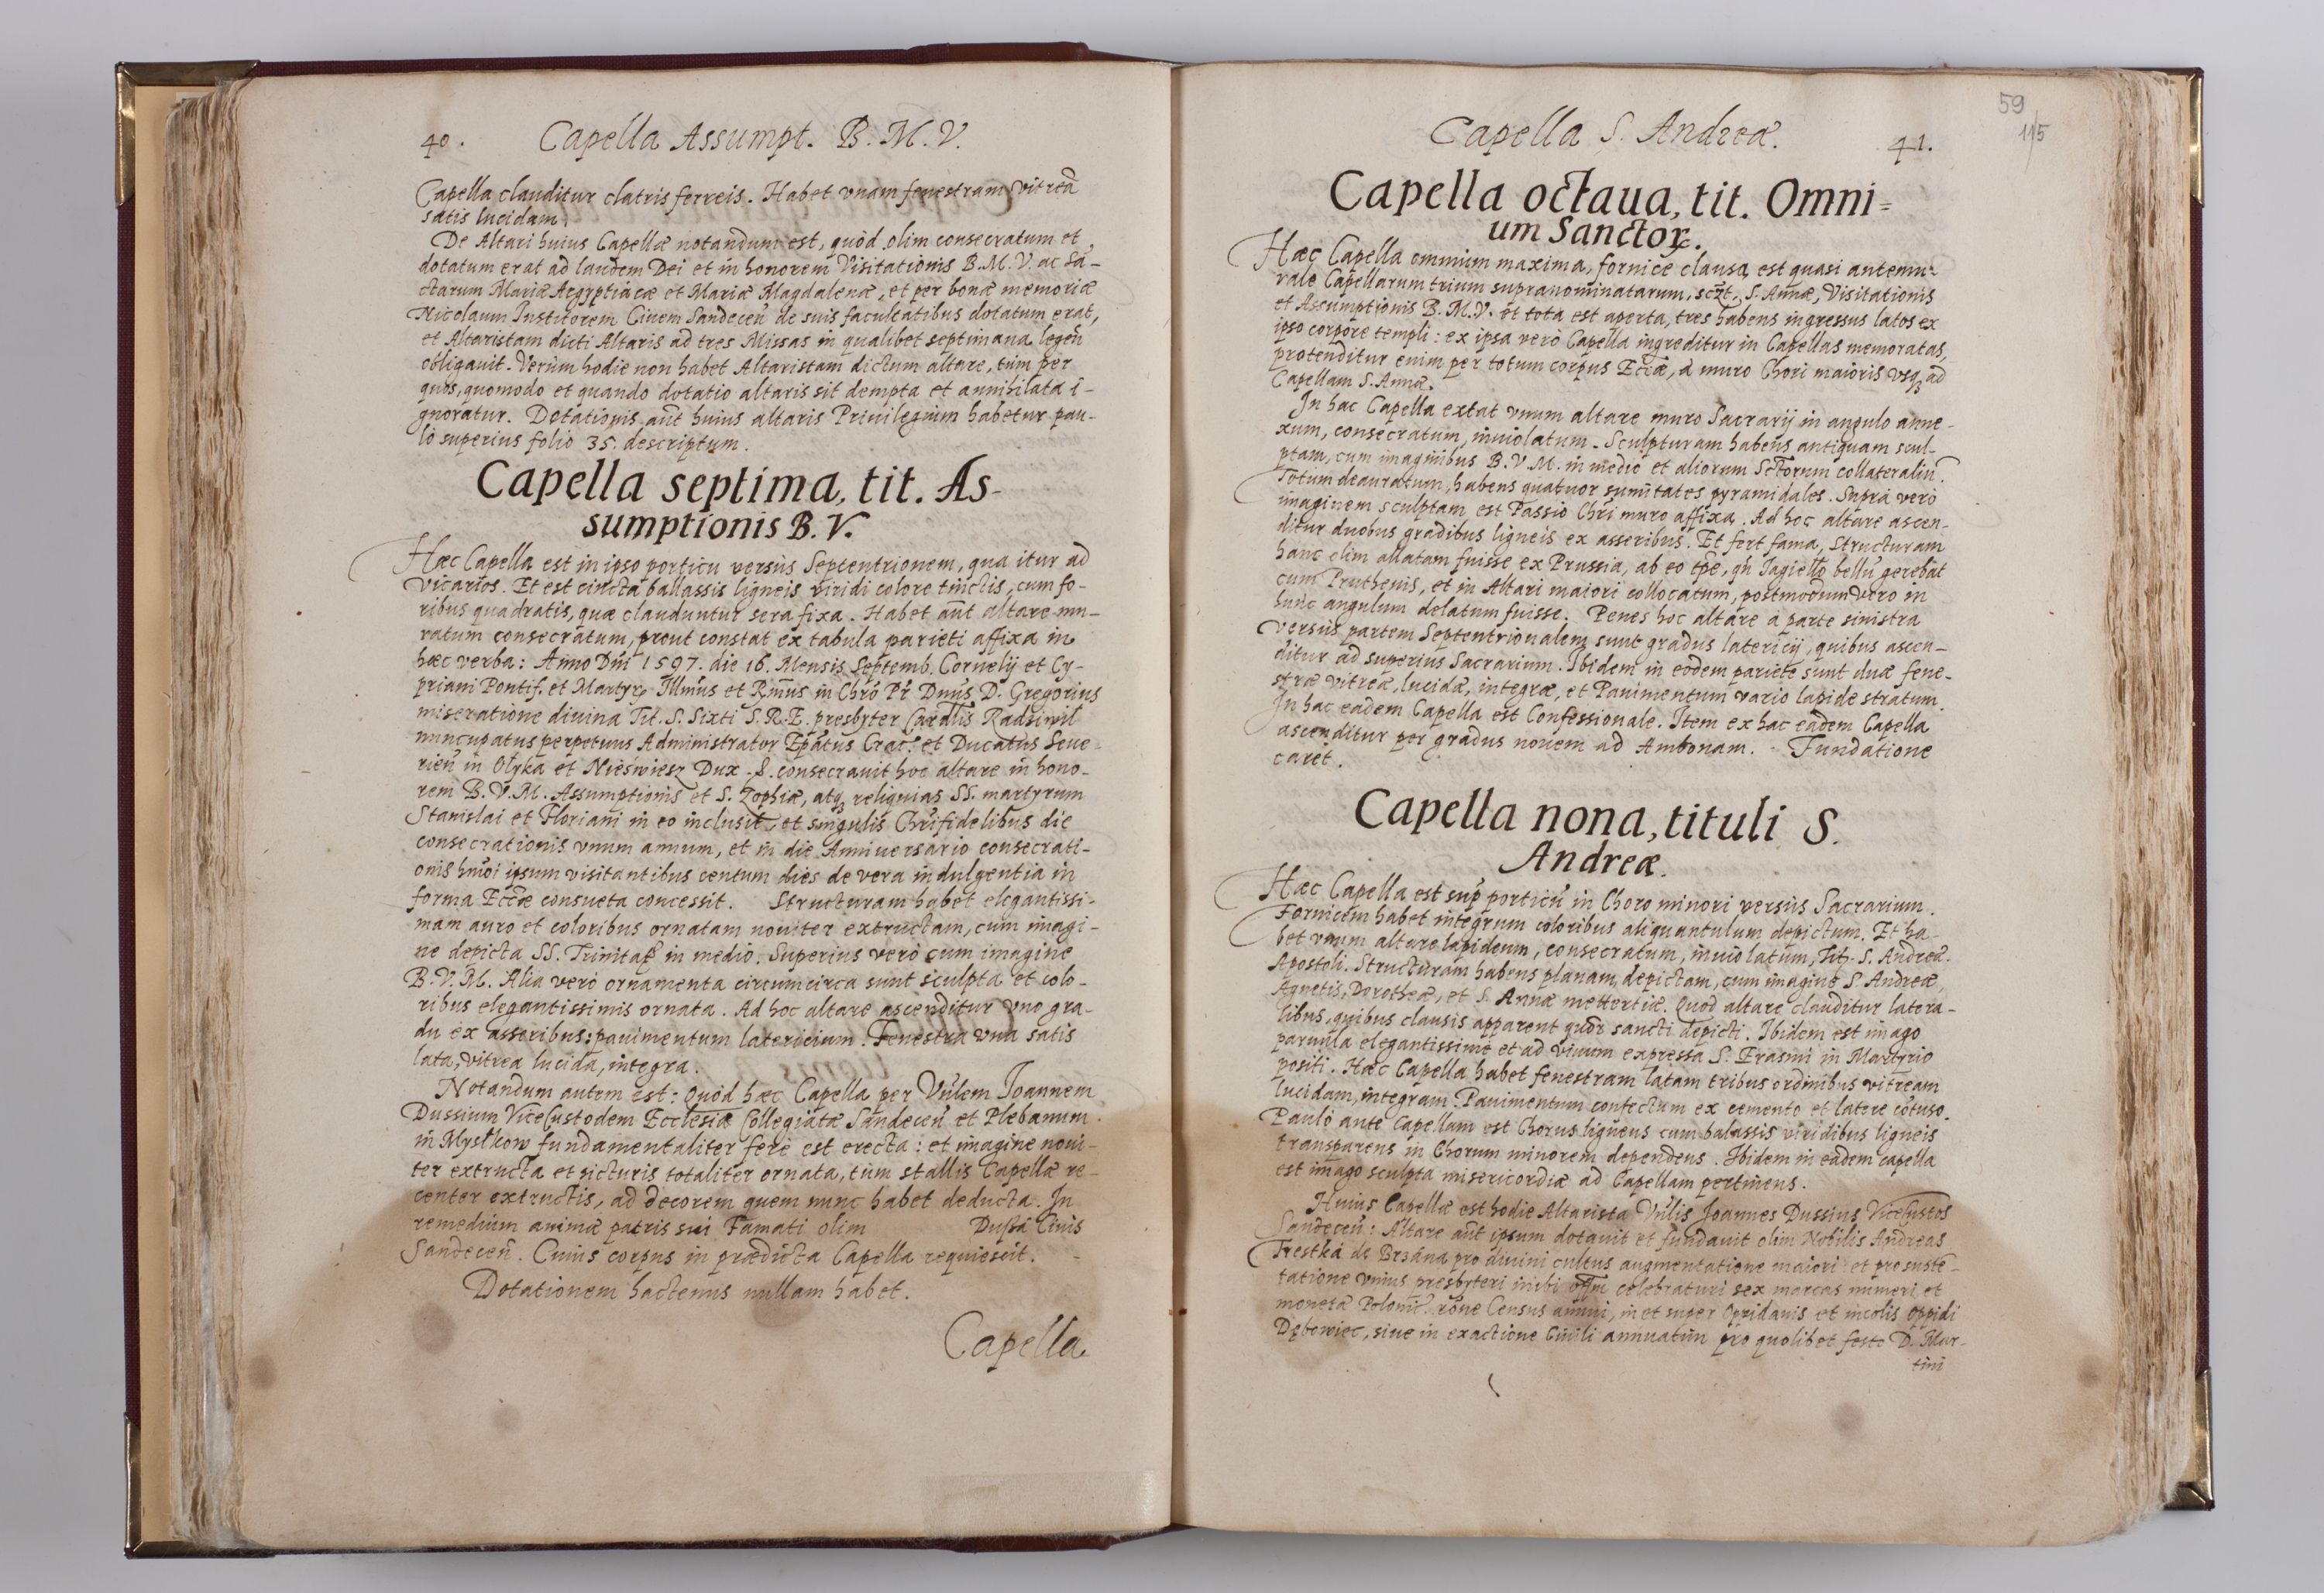 40. Capella Assumpt. B. M. V.
Capella clauditur clatris ferreis. Habet vnam fenestram vitreã
satis lucidam.
De Altari huius Capellæ notandum est, quòd olim consecratum et
dotatum erat ad laudem Dei et in honorem Visitationis B.M.V. ac Sã-
ctarum Mariæ Aegyptiacæ et Mariæ Magdalenæ, et per bonæ memoriæ
Nicolaum Institorem Ciuem Sandeceñ de suis facultatibus dotatum erat,
et Altaristam dicti Altaris ad tres Missas in qualibet septimana legeñ
obligauit. Verùm hodie non habet Altaristam dictum altare, tùm per
quos, quomodo et quando dotatio altaris sit dempta et annihilata i-
gnoratur. Dotationis aũt huius altaris Priuilegium habetur pau-
lò superius folio 35. descriptum.
Capella septima, tit. As-
sumptionis B. V.
Hæc Capella est in ipso porticu versùs Septentrionem, qua itur ad
Vicarios. Et est cincta ballassis ligneis viridi colore tinctis, cum fo-
ribus quadratis, quæ clauduntur sera fixa. Habet aũt altare mu-
ratum consecratum, prout constat ex tabula parieti affixa in
hæc verba: Anno Dñi 1597. die 16. Mensis Septemb. Cornelij et Cy-
priani Pontif. et Martyrꝫ Illm̃us et Rm̃us in Chrõ Pr̃ Dñus D. Gregorius
miseratione diuina Tit. S. Sixti S.R.E. presbyter Cardlis Radziwil
nuncupatus perpetuus Administrator Ep̃atus Crac. et Ducatus Seue-
rieñ in Olyka et Nieświesz Dux. S. consecrauit hoc altare in hono-
rem B.V.M. Assumptionis et S. Zophiæ, atqꝫ reliquias SS. martyrum
Stanislai et Floriani in eo inclusit, et singulis Chrifidelibus die
consecrationis vnum annum, et in die Anniuersario consecrati-
onis hm̃oi ipsum visitantibus centum dies de vera indulgentia in
forma Eccæ consueta concessit. Structuram habet elegantissi-
mam auro et coloribus ornatam nouiter extructam, cum imagi-
ne depicta SS. Trinitatꝭ in medio. Superius verò cum imagine
B.V.M. Alia verò ornamenta circumcirca sunt sculpta et colo-
ribus elegantissimis ornata. Ad hoc altare ascenditur vno gra-
du ex asseribus: pauimentum latericium. Fenestra vna satis
lata, vitrea lucida, integra.
Notandum autem est: Quòd hæc Capella per Vńlem Joannem
Dussium ViceCustodem Ecclesiæ Collegiatæ Sandeceñ et Plebanum
in Mystkow fundamentaliter ferè est erecta: et imagine noui-
ter extructa et picturis totaliter ornata, tùm stallis Capellæ re-
center extructis, ad decorem quem nunc habet deducta. In
remedium animæ patris sui Famati olim Dussa Ciuis
Sandeceñ. Cuius corpus in prædicta Capella requiescit.
Dotationem hactenus nullam habet.
Capella
59
115
Capella S. Andreæ. 41.
Capella octaua, tit. Omni=
um Sanctorꝫ.
Hæc Capella omnium maxima, fornice clausa, est quasi antemu-
rale Capellarum trium supranominatarum, sczt, S. Annæ, Visitationis
et Assumptionis B.M.V. et tota est aperta, tres habens ingressus latos ex
ipso corpore templi: ex ipsa verò Capella ingreditur in Capellas memoratas,
protenditur enim per totum corpus Eccæ, à muro Chori maioris vsqꝫ ad
Capellam S. Annæ.
In hac Capella extat vnum altare muro Sacrarij in angulo anne-
xum, consecratum, inuiolatum. Sculpturam habens antiquam scul-
ptam, cum imaginibus B.V.M. in medio et aliorum Sctorum collateraliũ.
Totum deauratum, habens quatuor sumitates pyramidales. Supra verò
imaginem sculptam est Passio Chri muro affixa. Ad hoc altare ascen-
ditur duobus gradibus ligneis ex asseribus. Et fert fama, Structuram
hanc olim allatam fuisse ex Prussia, ab eo tp̃e, qñ Jagiełło bellũ gerebat
cum Pruthenis, et in Altari maiori collocatum, postmodum vero in
hunc angulum delatum fuisse. Penes hoc altare à parte sinistra
versùs partem Septentrionalem sunt gradus latericij, quibus ascen-
ditur ad superius Sacrarium. Ibidem in eodem pariete sunt duæ fene-
stræ vitreæ, lucidæ, integræ, et Pauimentum vario lapide stratum.
In hac eadem Capella est Confessionale. Item ex hac eadem Capella
ascenditur per gradus nouem ad Ambonam. Fundatione
caret.
Capella nona, tituli S.
Andreæ.
Hæc Capella est sup̃ porticũ in Choro minori versùs Sacrarium.
Fornicem habet integrum coloribus aliquantulum depictum. Et ha-
bet vnum altare lapideum, consecratum, inuiolatum, Tit. S. Andreæ
Apostoli. Structuram habens planam, depictam, cum imagine S. Andreæ,
Agnetis, Dorotheæ, et S. Annæ mettertiæ. Quod altare clauditur latera-
libus, quibus clausis apparent quõr sancti depicti. Ibidem est imago
paruula elegantissimè et ad viuum expressa S. Erasmi in Martyrio
positi. Hæc Capella habet fenestram latam tribus ordinibus vitream
lucidam, integram. Pauimentum confectum ex cemento et latere cõtuso.
Paulò ante Capellam est Chorus ligneus cum balassis viridibus ligneis
transparens in Chorum minorem dependens. Ibidem in eadem capella
est imago sculpta misericordiæ ad Capellam pertinens.
Huius Capellæ est hodie Altarista Vńlis Joannes Dussius ViceCustos
Sandeceñ: Altare aũt ipsum dotauit et fundauit olim Nobilis Andreas
Trestka de Brzana pro diuini cultus augmentatione maiori et pro susten-
tatione vnius presbyteri inibi celebraturi sex marcas numeri et
monetæ Polonic. rõne Census annui, in et super Oppidanis et incolis Oppidi
Dębowiec, siue in exactione Ciuili annuatim pro quolibet festo D. Mar-
tini